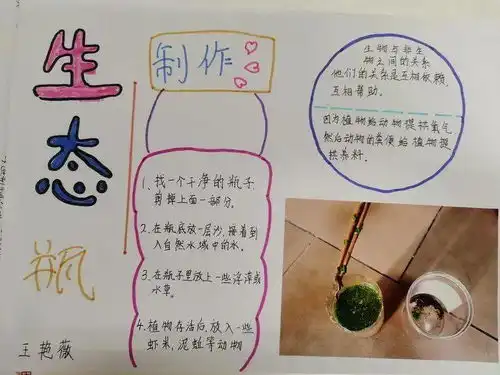 生态瓶
王艳薇
制作
1、找一个干净的瓶子
剪掉上面一部分。
2、在瓶底放一层沙,接着到
入自然水域中的水。
3、在瓶子里放上一些浮萍或
水草。
4、植物存活后,放入一些
虾米,泥蛙等动物
生物与非生
物之间的关系
他们的关系是互相依赖,
互相帮助。
因为植物给动物提供氧气
然后动物的粪便给植物提
供养料。